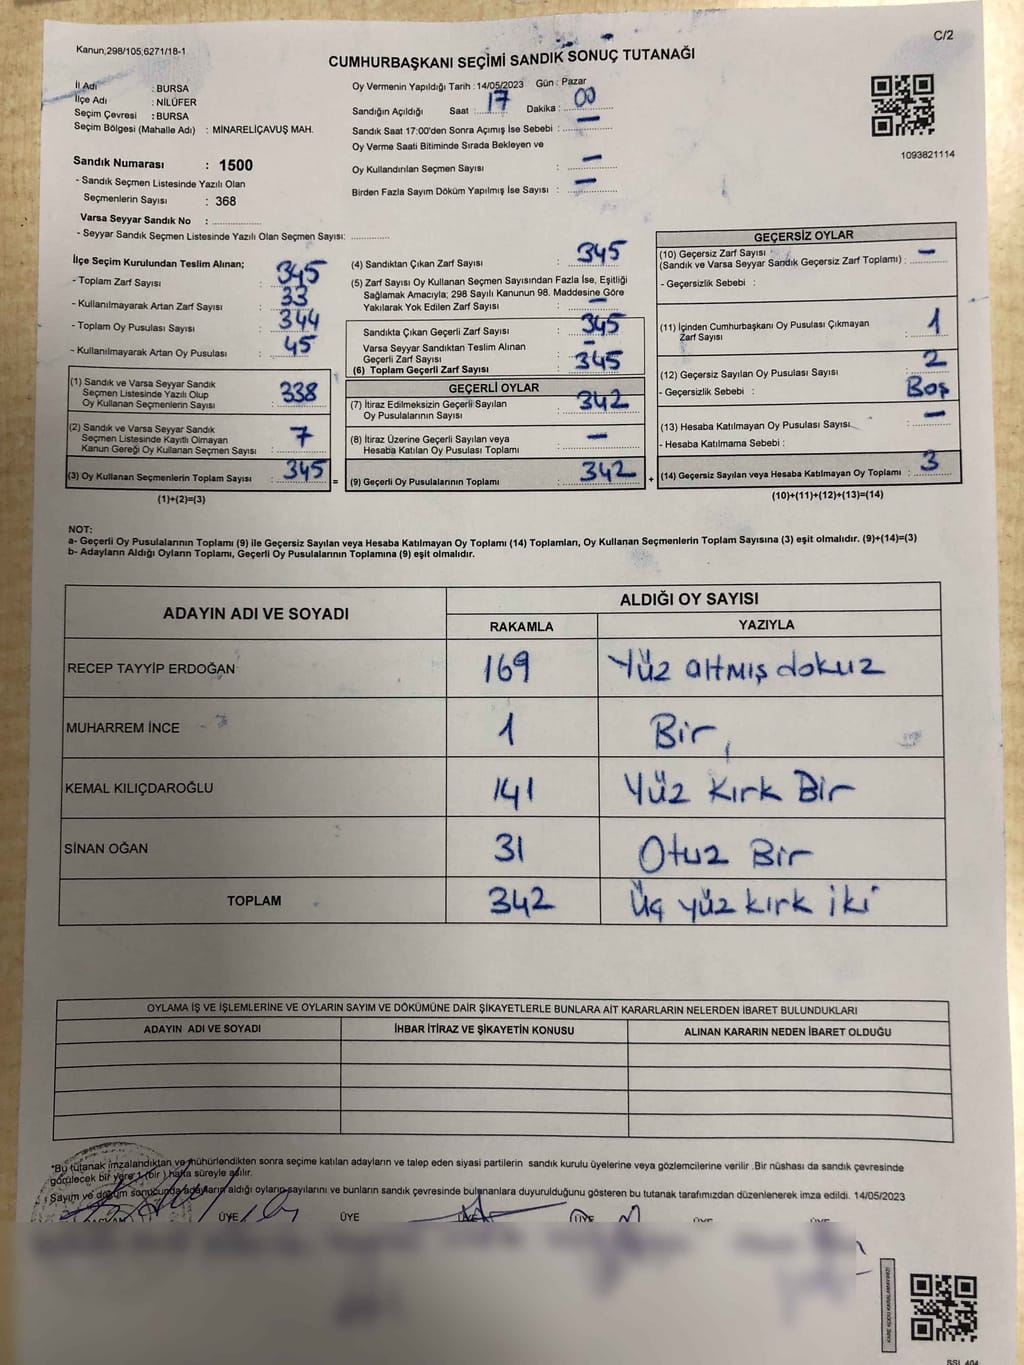 Kanun,298/105,6271/18-1
C/2
CUMHURBAŞKANI SEÇİMİ SANDIK SONUÇ TUTANAĞI
İl Adı : BURSA
İlçe Adı : NİLÜFER
Seçim Çevresi : BURSA
Seçim Bölgesi (Mahalle Adı) : MİNARELİÇAVUŞ MAH.
Sandık Numarası : 1500
- Sandık Seçmen Listesinde Yazılı Olan
Seçmenlerin Sayısı : 368
Varsa Seyyar Sandık No :
- Seyyar Sandık Seçmen Listesinde Yazılı Olan Seçmen Sayısı:
Oy Vermenin Yapıldığı Tarih : 14/05/2023 Gün : Pazar
Sandığın Açıldığı Saat : 17 Dakika : 00
Sandık Saat 17:00'den Sonra Açımış İse Sebebi : –
Oy Verme Saati Bitiminde Sırada Bekleyen ve
Oy Kullandırılan Seçmen Sayısı : –
Birden Fazla Sayım Döküm Yapılmış İse Sayısı : –
1093821114
İlçe Seçim Kurulundan Teslim Alınan;
- Toplam Zarf Sayısı : 345
- Kullanılmayarak Artan Zarf Sayısı : 33
- Toplam Oy Pusulası Sayısı : 344
- Kullanılmayarak Artan Oy Pusulası : 45
(1) Sandık ve Varsa Seyyar Sandık
Seçmen Listesinde Yazılı Olup
Oy Kullanan Seçmenlerin Sayısı : 338
(2) Sandık ve Varsa Seyyar Sandık
Seçmen Listesinde Kayıtlı Olmayan
Kanun Gereği Oy Kullanan Seçmen Sayısı : 7
(3) Oy Kullanan Seçmenlerin Toplam Sayısı : 345
(1)+(2)=(3)
=
(4) Sandıktan Çıkan Zarf Sayısı : 345
(5) Zarf Sayısı Oy Kullanan Seçmen Sayısından Fazla İse, Eşitliği
Sağlamak Amacıyla; 298 Sayılı Kanunun 98. Maddesine Göre
Yakılarak Yok Edilen Zarf Sayısı : –
Sandıkta Çıkan Geçerli Zarf Sayısı : 345
Varsa Seyyar Sandıktan Teslim Alınan
Geçerli Zarf Sayısı : –
(6) Toplam Geçerli Zarf Sayısı : 345
GEÇERLİ OYLAR
(7) İtiraz Edilmeksizin Geçerli Sayılan
Oy Pusulalarının Sayısı : 342
(8) İtiraz Üzerine Geçerli Sayılan veya
Hesaba Katılan Oy Pusulası Toplamı : –
(9) Geçerli Oy Pusulalarının Toplamı : 342
+
GEÇERSİZ OYLAR
(10) Geçersiz Zarf Sayısı
(Sandık ve Varsa Seyyar Sandık Geçersiz Zarf Toplamı) : –
- Geçersizlik Sebebi :
(11) İçinden Cumhurbaşkanı Oy Pusulası Çıkmayan
Zarf Sayısı : 1
(12) Geçersiz Sayılan Oy Pusulası Sayısı : 2
- Geçersizlik Sebebi : Boş
(13) Hesaba Katılmayan Oy Pusulası Sayısı : –
- Hesaba Katılmama Sebebi :
(14) Geçersiz Sayılan veya Hesaba Katılmayan Oy Toplamı : 3
(10)+(11)+(12)+(13)=(14)
NOT:
a- Geçerli Oy Pusulalarının Toplamı (9) ile Geçersiz Sayılan veya Hesaba Katılmayan Oy Toplamı (14) Toplamları, Oy Kullanan Seçmenlerin Toplam Sayısına (3) eşit olmalıdır. (9)+(14)=(3)
b- Adayların Aldığı Oyların Toplamı, Geçerli Oy Pusulalarının Toplamına (9) eşit olmalıdır.
ADAYIN ADI VE SOYADI ALDIĞI OY SAYISI
RAKAMLA YAZIYLA
RECEP TAYYİP ERDOĞAN 169 Yüz altmış dokuz
MUHARREM İNCE 1 Bir
KEMAL KILIÇDAROĞLU 141 Yüz Kırk Bir
SİNAN OĞAN 31 Otuz Bir
TOPLAM 342 Üç yüz kırk iki
OYLAMA İŞ VE İŞLEMLERİNE VE OYLARIN SAYIM VE DÖKÜMÜNE DAİR ŞİKAYETLERLE BUNLARA AİT KARARLARIN NELERDEN İBARET BULUNDUKLARI
ADAYIN ADI VE SOYADI İHBAR İTİRAZ VE ŞİKAYETİN KONUSU ALINAN KARARIN NEDEN İBARET OLDUĞU
*Bu tutanak imzalandıktan ve mühürlendikten sonra seçime katılan adayların ve talep eden siyasi partilerin sandık kurulu üyelerine veya gözlemcilerine verilir .Bir nüshası da sandık çevresinde
görülecek bir yere 1 (bir ) hafta süreyle asılır.
Sayım ve döküm sonucunda adayların aldığı oyların sayılarını ve bunların sandık çevresinde bulunanlara duyurulduğunu gösteren bu tutanak tarafımızdan düzenlenerek imza edildi. 14/05/2023
BAŞKAN ÜYE ÜYE ÜYE ÜYE ÜYE ÜYE
KARE KODU KARALAMAYINIZ!